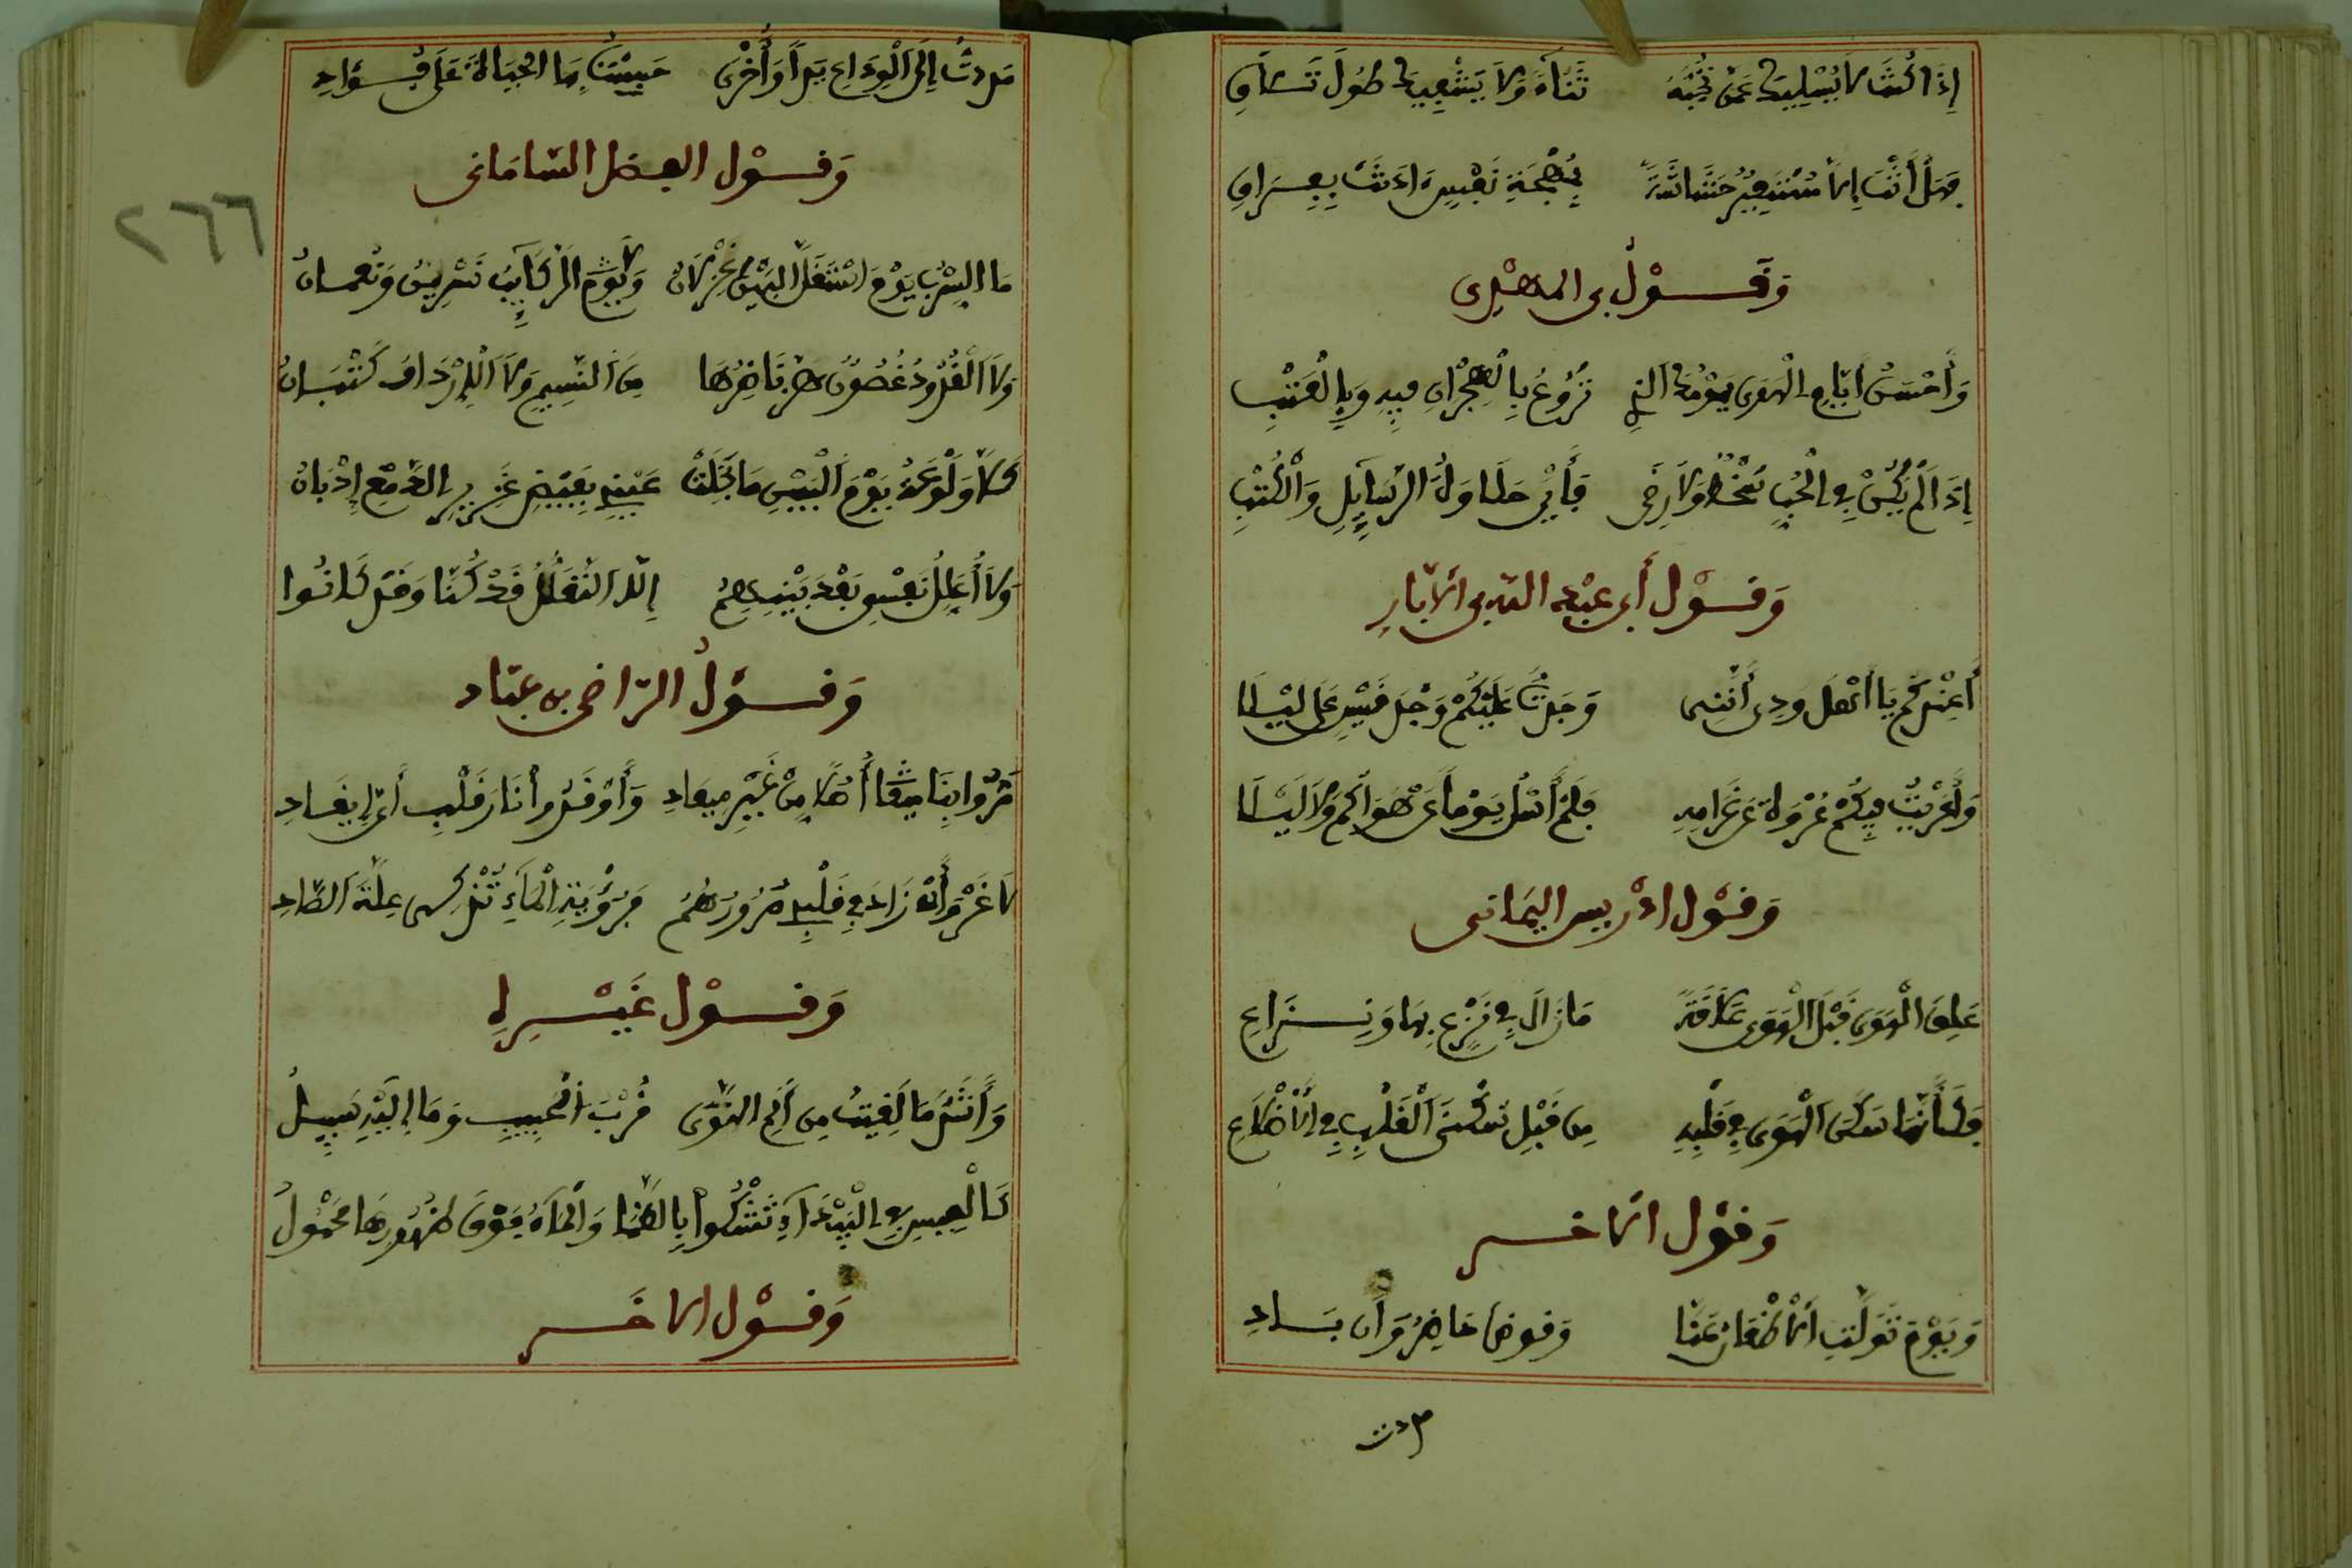 إِذَا كُنْتَ لَا يُسْلِيكَ عَمَّنْ تُحِبُّهُ تَنَاءٍ وَلَا يَشْفِيكَ طُولُ تَلَاقِ
فَهَلْ أَنْتَ إِلَّا مُسْتَعِيرٌ حُشَاشَةً لِمُهْجَةِ نَفْسٍ آذَنَتْ بِفِرَاقِ
وَقَوْلُ بن المهدي
وَأَحْسَنُ أَيَّامِ الْهَوَى يَوْمُكَ الَّذِي تُرَوَّعُ بِالْهِجْرَانِ فِيهِ وَبِالْعَتْبِ
إِذَا لَمْ يَكُنْ فِي الْحُبِّ سُخْطٌ وَلَا رِضًى فَأَيْنَ حَلَاوَاتُ الرَّسَائِلِ وَالْكُتْبِ
وَقَوْل أبي عبد الله بن الأبار
أَعِنْدَكُمْ يَا أَهْلَ وُدِّي أَنَّنِي وَجَدْتُ عَلَيْكُمْ وَجْدَ قَيْسٍ عَلَى لَيْلَى
وَأَغْرَيْتُ فِيكُمْ عُرْوَةً عَنْ غَرَامِهِ فَلَمْ أَسْلُ يَوْماً عَنْ هَوَاكُمْ وَلَا لَيْلَا
وَقَوْل ادريس اليماني
عَلِقَ الْهَوَى قَبْلَ الْهَوَى عَلَاقَةً مَا زَالَ فِي نَزْعٍ بِهَا وَنِزَاعِ
فَكَأَنَّمَا سَكَنَ الْهَوَى فِي قَلْبِهِ مِن قَبْلِ سُكْنَى الْقَلْبِ فِي الْأَضْلَاعِ
وَقَوْل الآخر
وَيَوْمَ تَوَلَّتِ الْأَظْعَانُ عَنَّا وَقوض حَاضِرٌ وَأَرن بَادِ
مددت
مَدَدْتُ إِلَى الْوَدَاعِ يَداً وَأُخْرَى حَبَسْتُ بِهَا الْحَيَاةَ عَلَى فُؤَادِي
وَقَوْل الفضل السّاماني
مَا السِّرْبُ يَوْمَ اسْتَقَلَّ الْبَيْنُ غِزْلَانُ وَلَا يَوْمَ الرَّكَائِبُ نَسْرِينٌ وَنُعْمَانُ
وَلَا الْقُدُودُ غُصُونٌ هَزَّ نَاضِرُهَا مِنَ النَّسِيمِ وَلَا الْأَرْدَافُ كُثْبَانُ
كَلَّا وَلَوْعَةُ يَوْمِ الْبَيْنِ مَا بَخِلَتْ عَيْنٌ بِفَيْضٍ غَزِيرِ الدَّمْعِ إِذْ بَانُ
وَلَا أُعَلِّلُ نَفْسِي بَعْدَ بَيْنِهِمُ إِلَّا التَّعَلُّلُ قَدْ كُنَّا وَقَدْ كَانُوا
وَقَوْلُ الرّاضي بن عبّاد
مَرُّوا بِنَا أُصُلاً مِنْ غَيْرِ مِيعَادِ وَأَوْقَدُوا نَارَ قَلْبِي أَيَّ إِيقَادِ
لَا غَرْوَ أَنْ زَادَ فِي قَلْبِي مُرُورُهُمُ فَرُؤْيَةُ الْمَاءِ تُذْكِي عِلَّةَ الصَّادِي
وَقَوْل غَيْرِهِ
وَأَشَدُّ مَا لَقِيتُ مِن أَلَمِ الْهَوَى قُرْبَ الْحَبِيبِ وَمَا إِلَيْهِ سَبِيلُ
كَالْعِيسِ فِي الْبَيْدَاءِ تَشْكُوا بِالظَّمَا وَالْمَاءُ فَوْقَ ظُهُورِهَا مَحْمُولُ
وَقَوْل الآخَر
٢٦٦